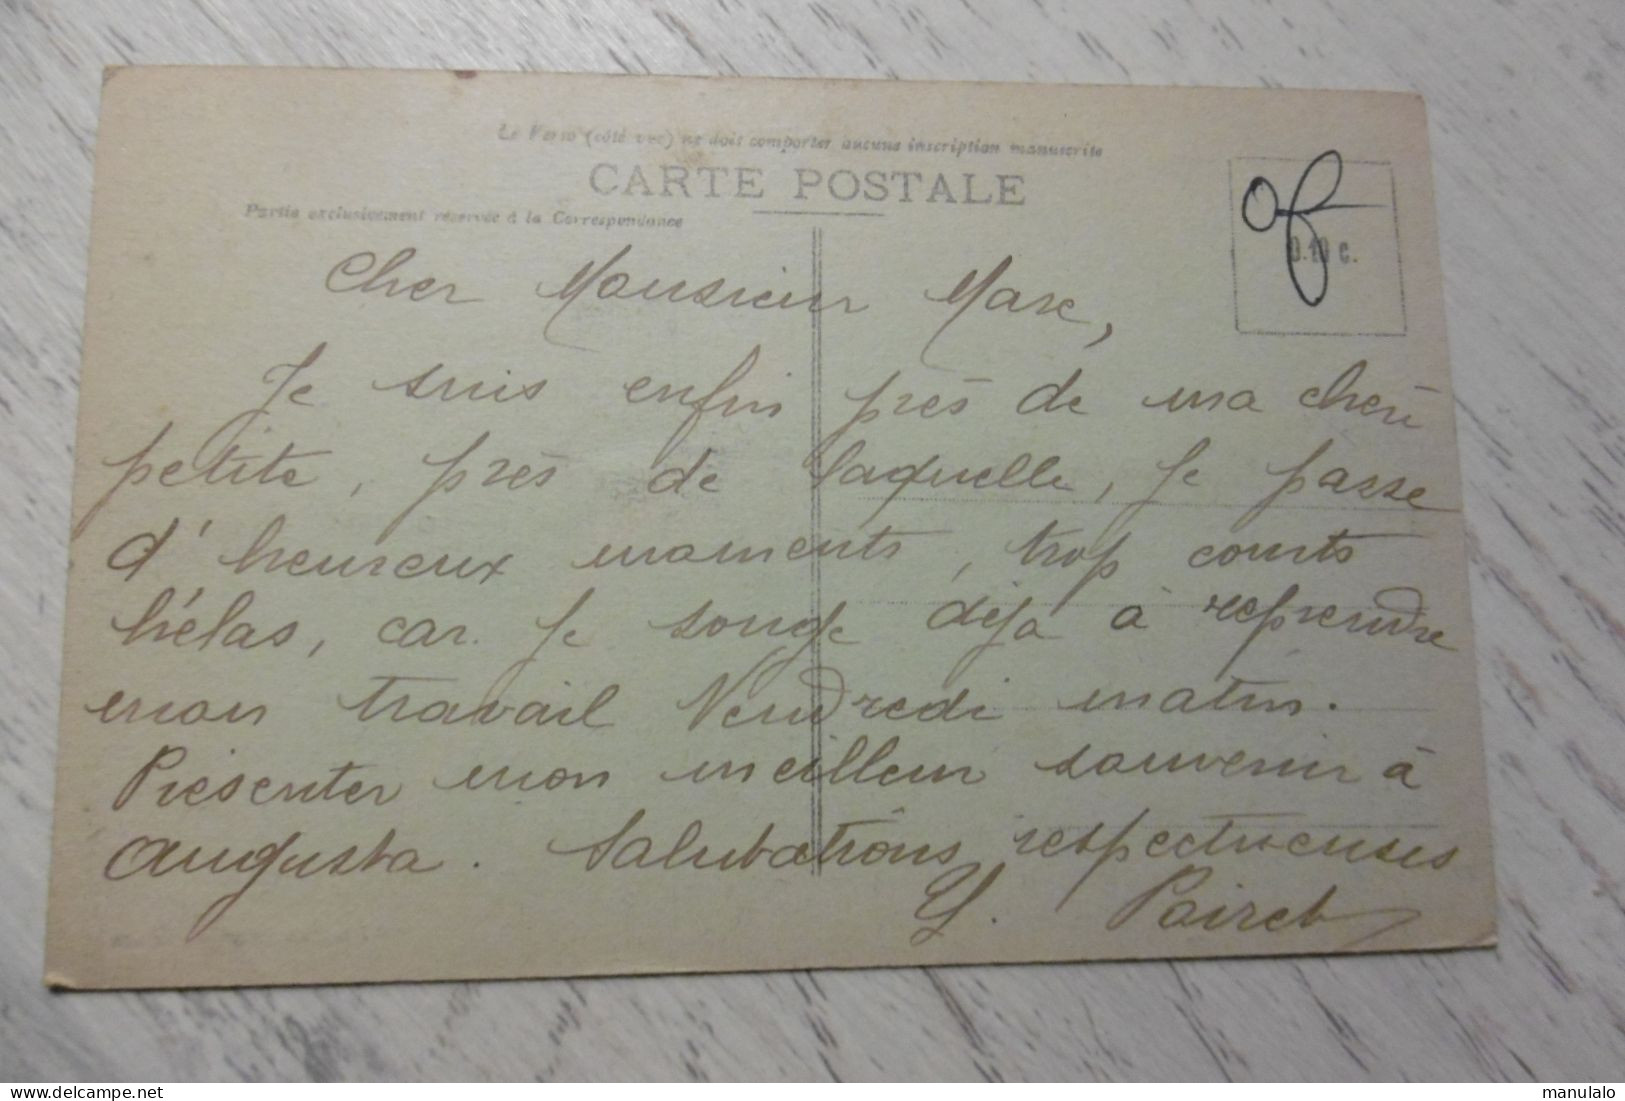 Le Verso (côté vue) ne doit comporter aucune inscription manuscrite
CARTE POSTALE
Partie exclusivement réservée à la Correspondance
0.10 c.
Cher Monsieur Marc,
Je suis enfin près de ma chère
petite, près de laquelle, je passe
d'heureux moments, trop courts
hélas, car je songe déja à reprendre
mon travail Vendredi matin.
Présenter mon meilleur souvenir à
Augusta. Salutations respectueuses
Y. Pairet
delcampe.net
manulalo